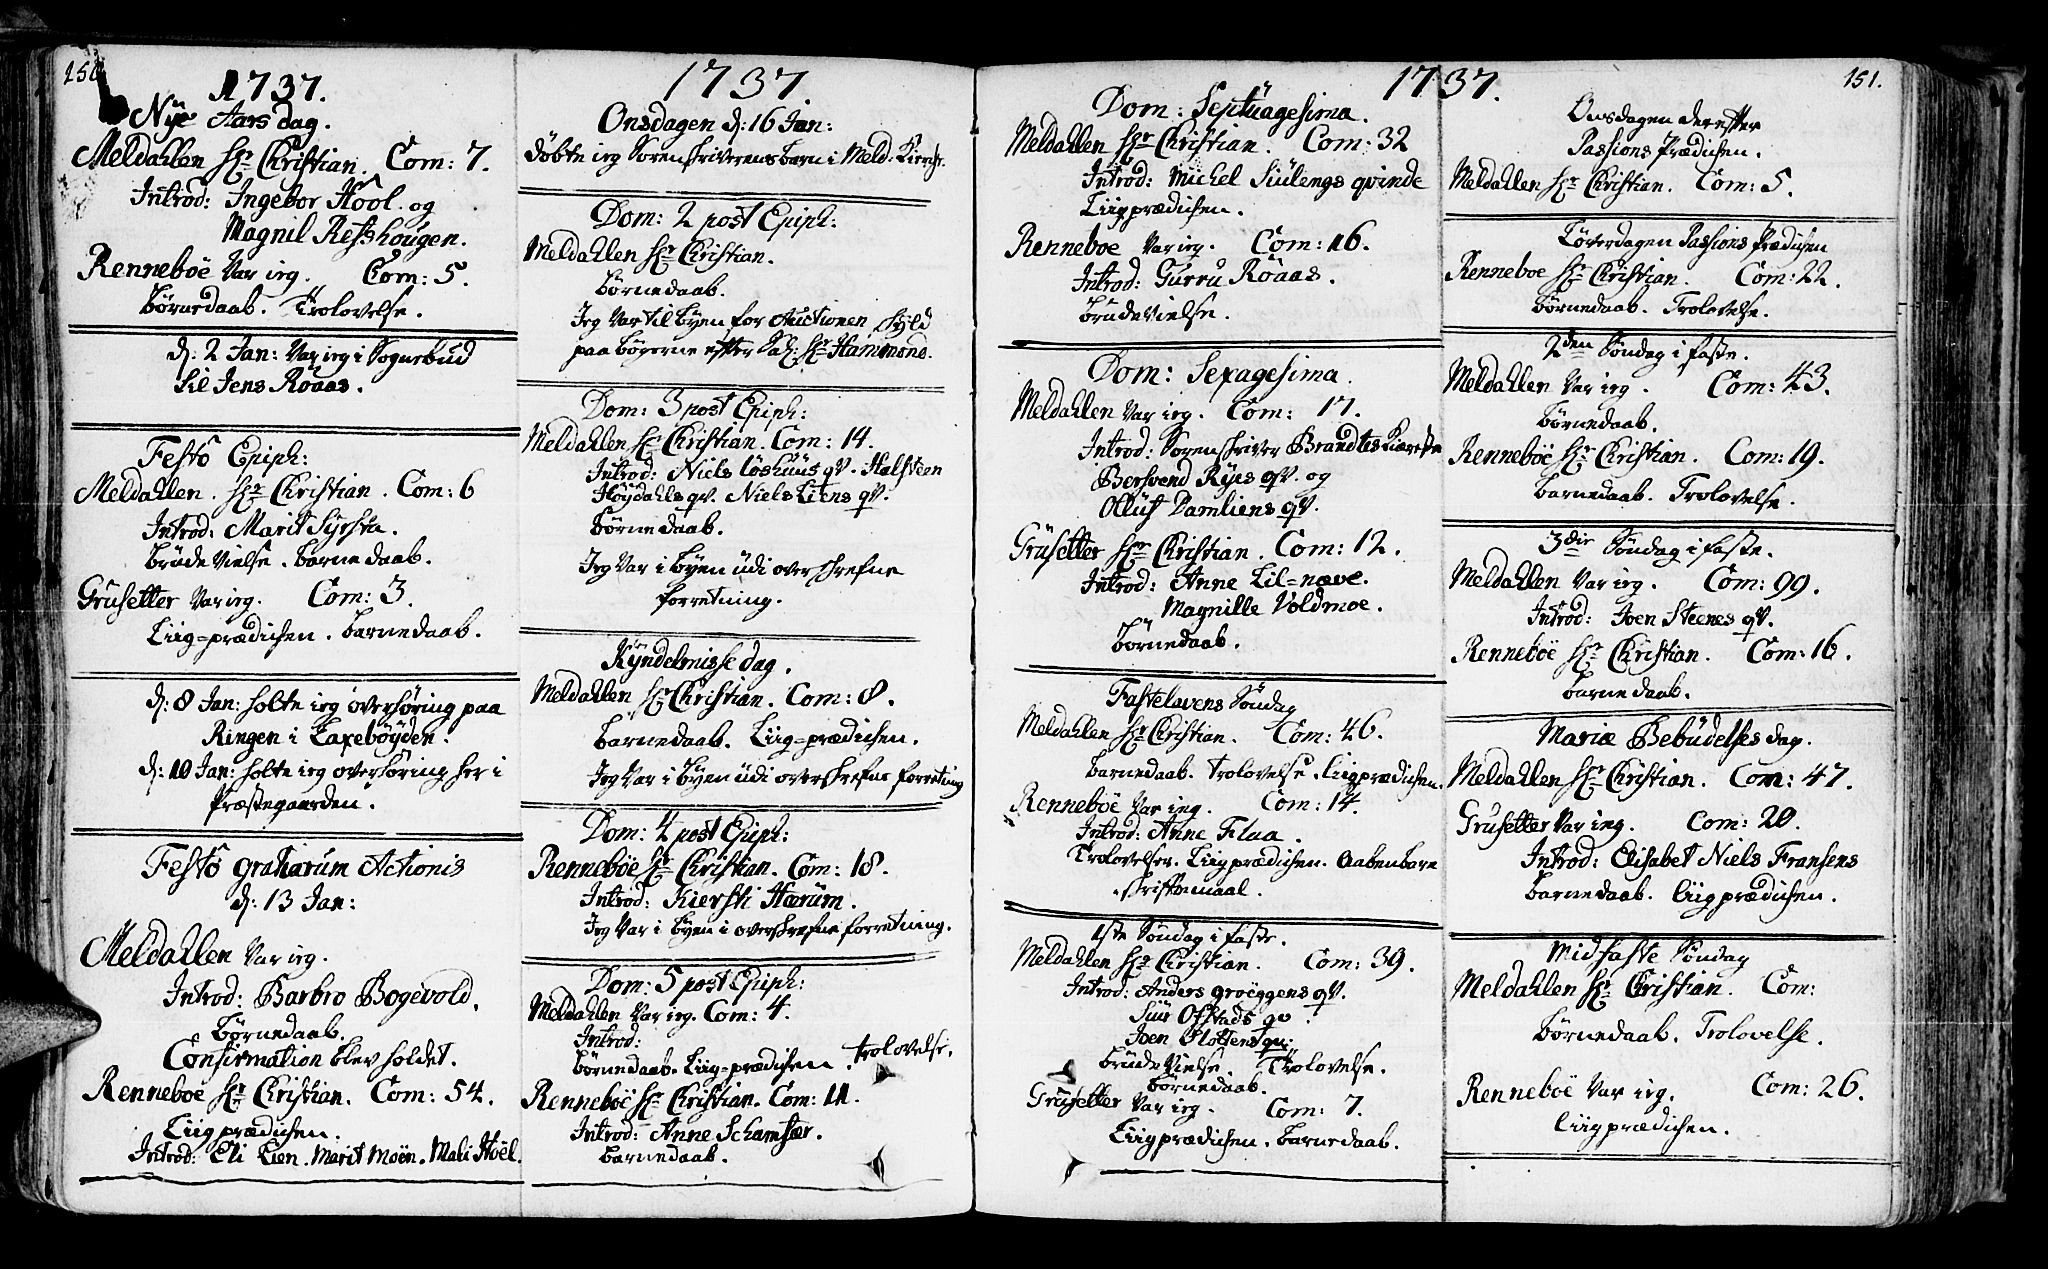 150
1737.
Nye Aars dag.
Meldahlen Hr Christian. Com: 7.
Introd: Ingebor Hool og
Magnil Refshougen.
Renneboe Var ieg. Com: 5.
börnedaab. Trolovelse.
d: 2 Jan: Var ieg i Sognebud
til Jens Röaas.
Festo Epiph:
Meldahlen. Hr Christian. Com: 6
Introd: Marit
Brüde Vielse. barnedaab.
Grusetter Var ieg. Com: 3.
Liig=prædichen. barnedaab.
d: 8 Jan: holte ieg overhöring paa
Ringen i Laxeböyden.
d: 10 Jan: holte ieg overhöring her i
Præstegaarden.
Festo gratiarum Actionis
d: 13 Jan:
Meldahlen Var ieg.
Introd: Barbro Bogevold.
Börnedaab.
Confirmation blev holdet.
Renneboe Hr Christian. Com: 54.
Liigprædichen.
Introd: Eli Lien. Marit Moen. Mali Höel.
1737
Onsdagen d: 16 Jan:
döbte ieg Sorenskriverens barn i Meld: Kirche.
Dom: 2 post Epiph:
Meldahlen Hr Christian.
Börnedaab.
Jeg Var til byen for Auctionen skyld
paa bögerne efter Sal: Hr Hammond.
Dom: 3 post Epiph:
Meldahlen Hr Christian. Com: 14.
Introd: Niels Löshuus qv. Halsteen
Höydahls qv. Niels Liens qv.
Börnedaab.
Jeg Var i byen udi overskrefne
forretning.
Kyndelmisse dag.
Meldahlen Hr Christian. Com: 8.
barnedaab. Liig=prædichen.
Jeg Var i byen udi overskrefne forretning
Dom: 4 post Epiph:
Renneboe Hr Christian. Com: 18.
Introd: Kiersti Hærum.
Jeg Var i byen i overskrefne forretning.
Dom: 5 post Epiph:
Meldahlen Var ieg. Com: 4.
Introd:
Börnedaab. Liig=prædichen. Trolovelse.
Renneboe Hr Christian. Com: 11.
Introd: Anne Schamfær.
barnedaab.
1737.
Dom: Septuagesima.
Meldahlen Hr Christian. Com: 32
Introd: Michel Süülengs qvinde
Liigprædichen.
Renneboe Var ieg. Com: 16.
Introd: Gurru Röaas.
brudevielse.
Dom: Sexagesima.
Meldahlen Var ieg. Com: 17.
Introd: Sorenskriver Brandtes Kiæreste
Bersvend Ryes qv. og
Olluf Damliens qv.
Grusetter Hr Christian. Com: 12.
Introd: Anne Lil=næve.
Magnille Voldmoe.
Börnedaab.
Fastelavens Söndag
Meldahlen Hr Christian. Com: 46.
barnedaab. trolovelse. Liigprædichen.
Renneboe Var ieg. Com: 14.
Introd: Anne Flaa.
Trolovelse. Liigprædichen. Aabenbare
skriftemaal.
1ste Söndag i faste.
Meldahlen Hr Christian. Com: 39.
Introd: Anders groeggens qv.
Siür Ofstads qv.
Joen Slottens qv.
brüde Vielse. Trolovelse.
Börnedaab.
Grusetter Var ieg. Com: 7.
Liigprædichen. barnedaab.
151.
Onsdagen derefter
Passions Prædichen.
Meldahlen Hr Christian. Com: 5.
Löverdagen Passions Prædichen
Renneboe Hr Christian. Com: 22.
Börnedaab. Trolovelse.
2den Söndag i faste.
Meldahlen Var ieg. Com: 43.
Börnedaab.
Renneboe Hr Christian. Com: 19.
barnedaab. Trolovelse.
3die Söndag i faste.
Meldahlen Var ieg. Com: 99.
Introd: Joen Steenes qv.
Renneboe Hr Christian. Com: 16.
barnedaab.
Mariæ Bebudelses dag.
Meldahlen Hr Christian. Com: 47.
Grusetter Var ieg. Com: 20.
Introd: Elisabet Niels Fransens
barnedaab. Liigprædichen.
Midfaste Söndag
Meldahlen Hr Christian. Com:
Börnedaab. Trolovelse.
Renneboe Var ieg. Com: 26.
Liigprædichen.